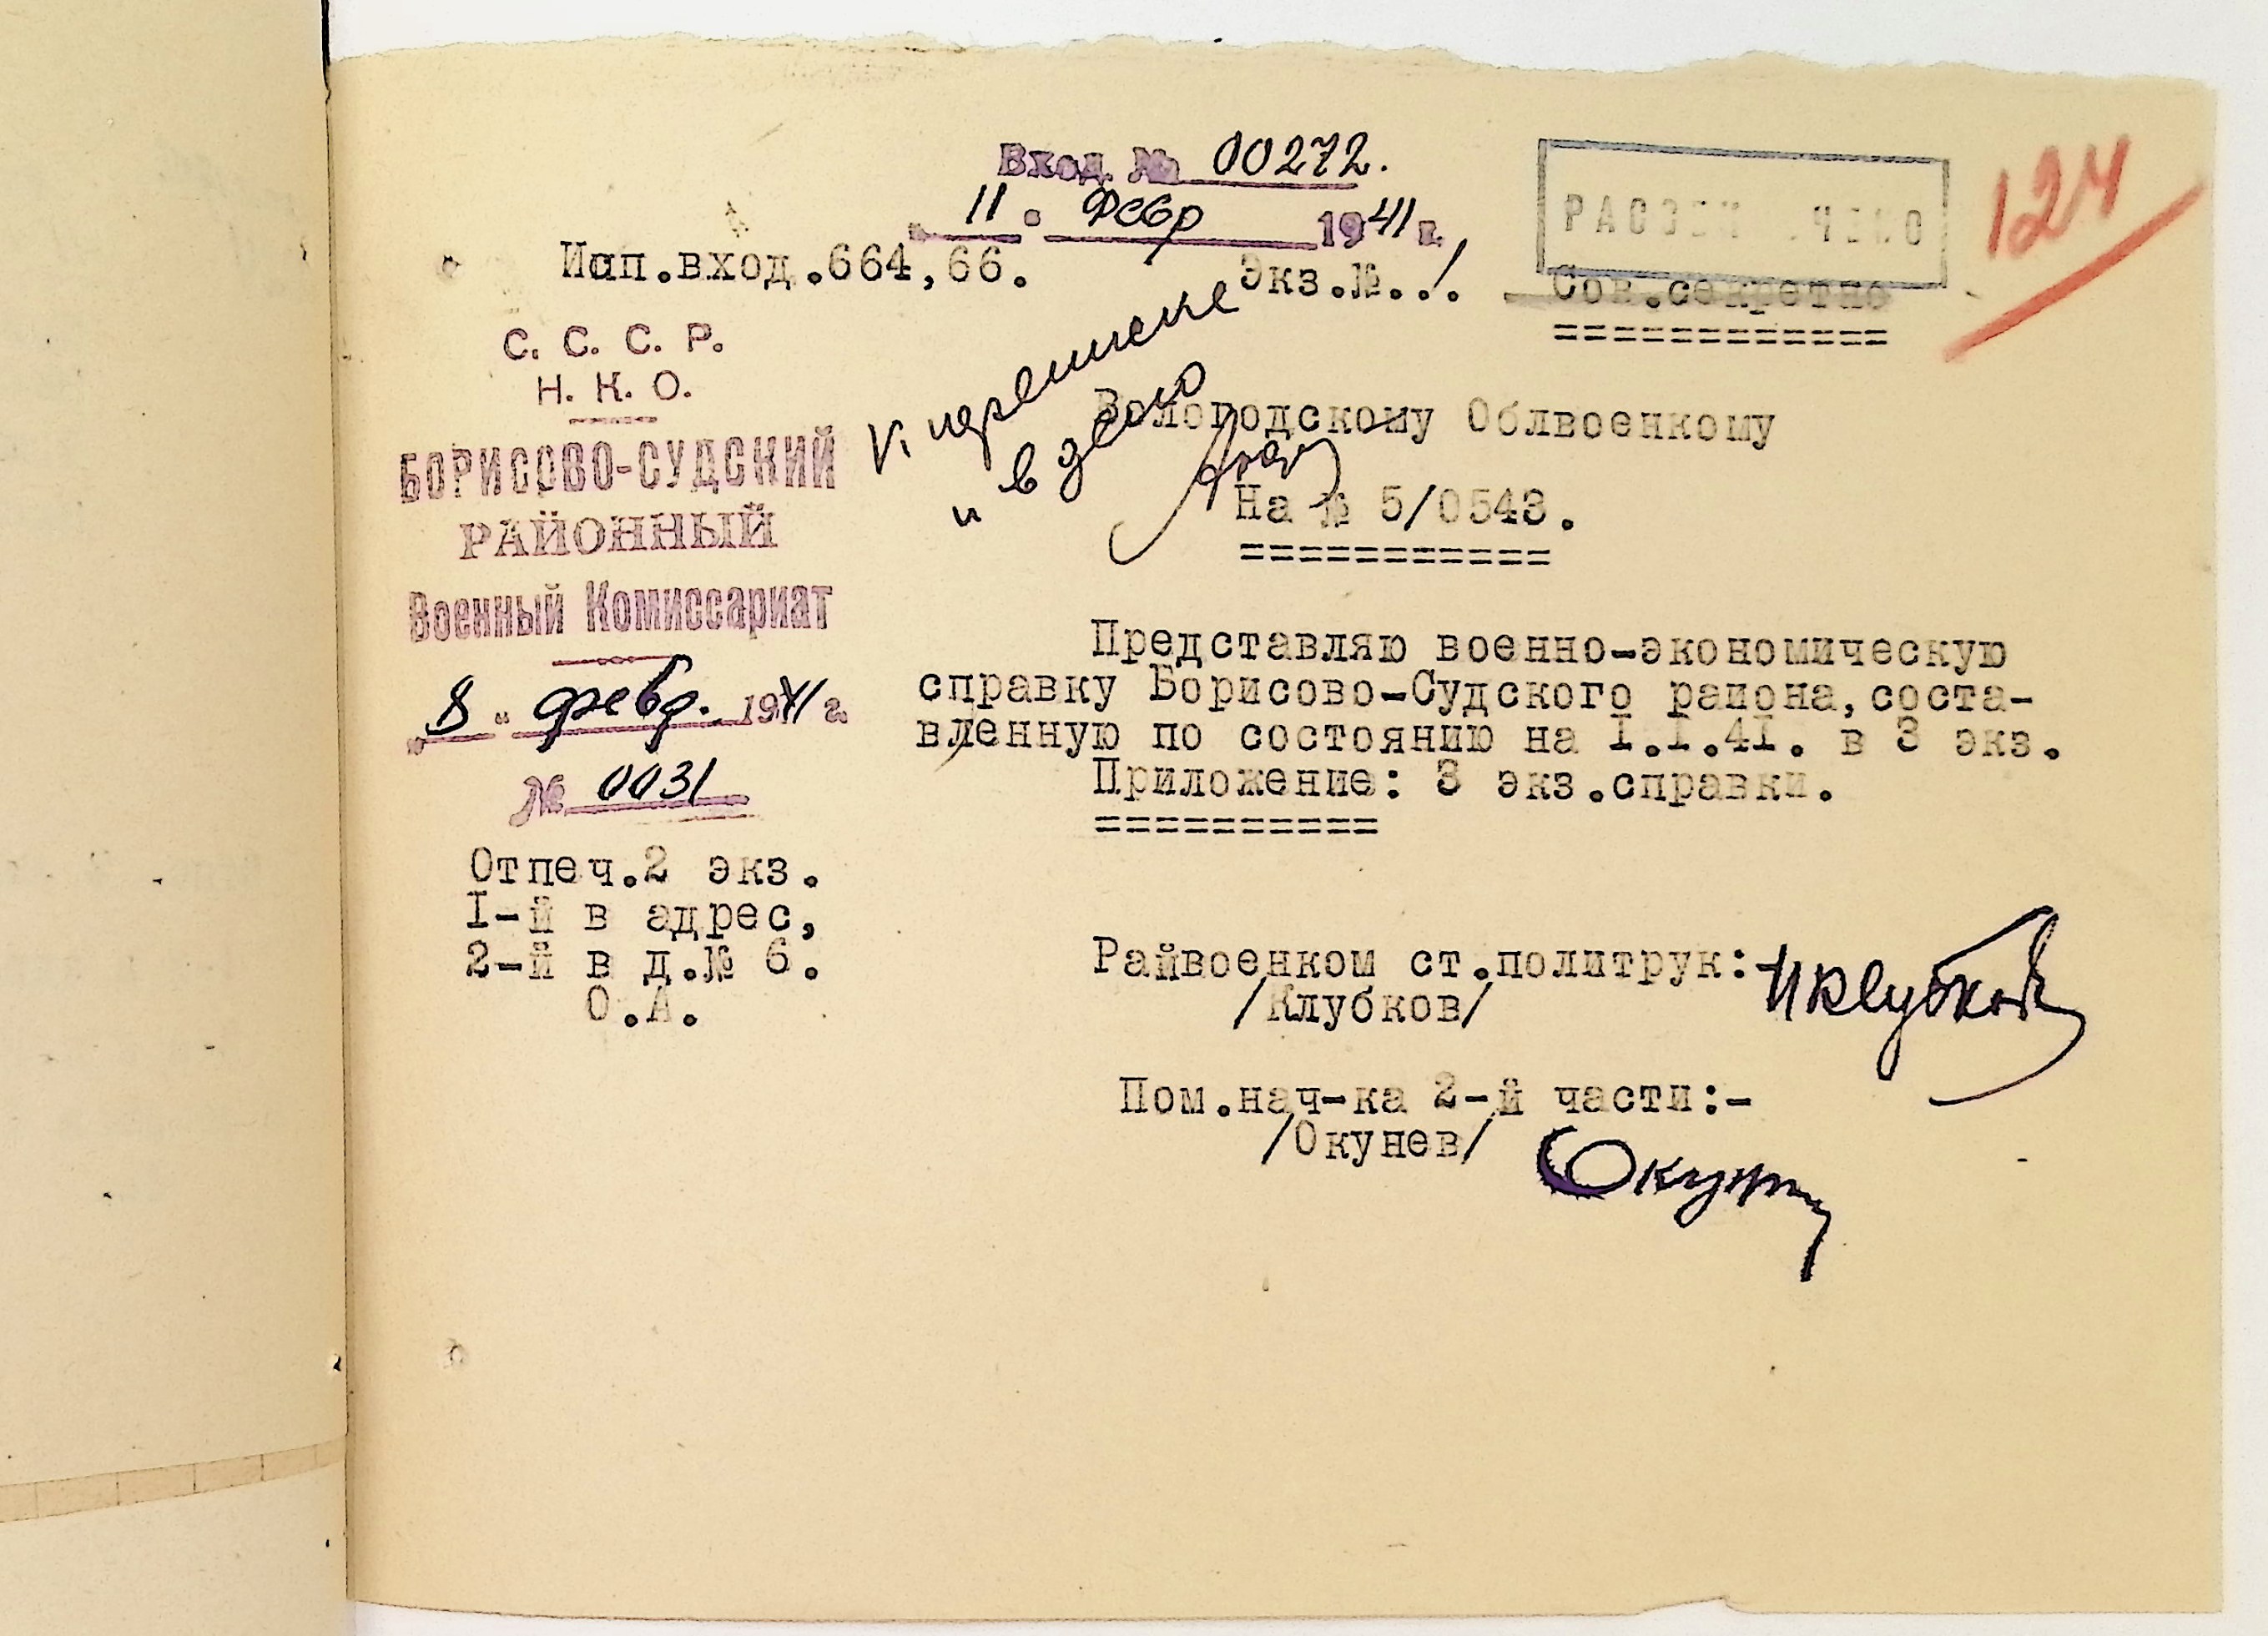 Вход. № 00272.
"11" Февр 1941 г.
124
Исп.вход.664,66.
Экз.№..1.
Сов.секретно
============
С. С. С. Р.
Н. К. О.
БОРИСОВО-СУДСКИЙ
РАЙОННЫЙ
Военный Комиссариат
"8" февр. 1941 г.
№ 0031
Отпеч.2 экз.
I-й в адрес,
2-й в д.№ 6.
О.А.
К
и в дело
Вологодскому Облвоенкому
На № 5/0543.
===========
Представляю военно-экономическую
справку Борисово-Судского района,соста-
вленную по состоянию на I.I.4I. в 3 экз.
Приложение: 3 экз.справки.
==========
Райвоенком ст.политрук:-
/Клубков/
Пом.нач-ка 2-й части:-
/Окунев/